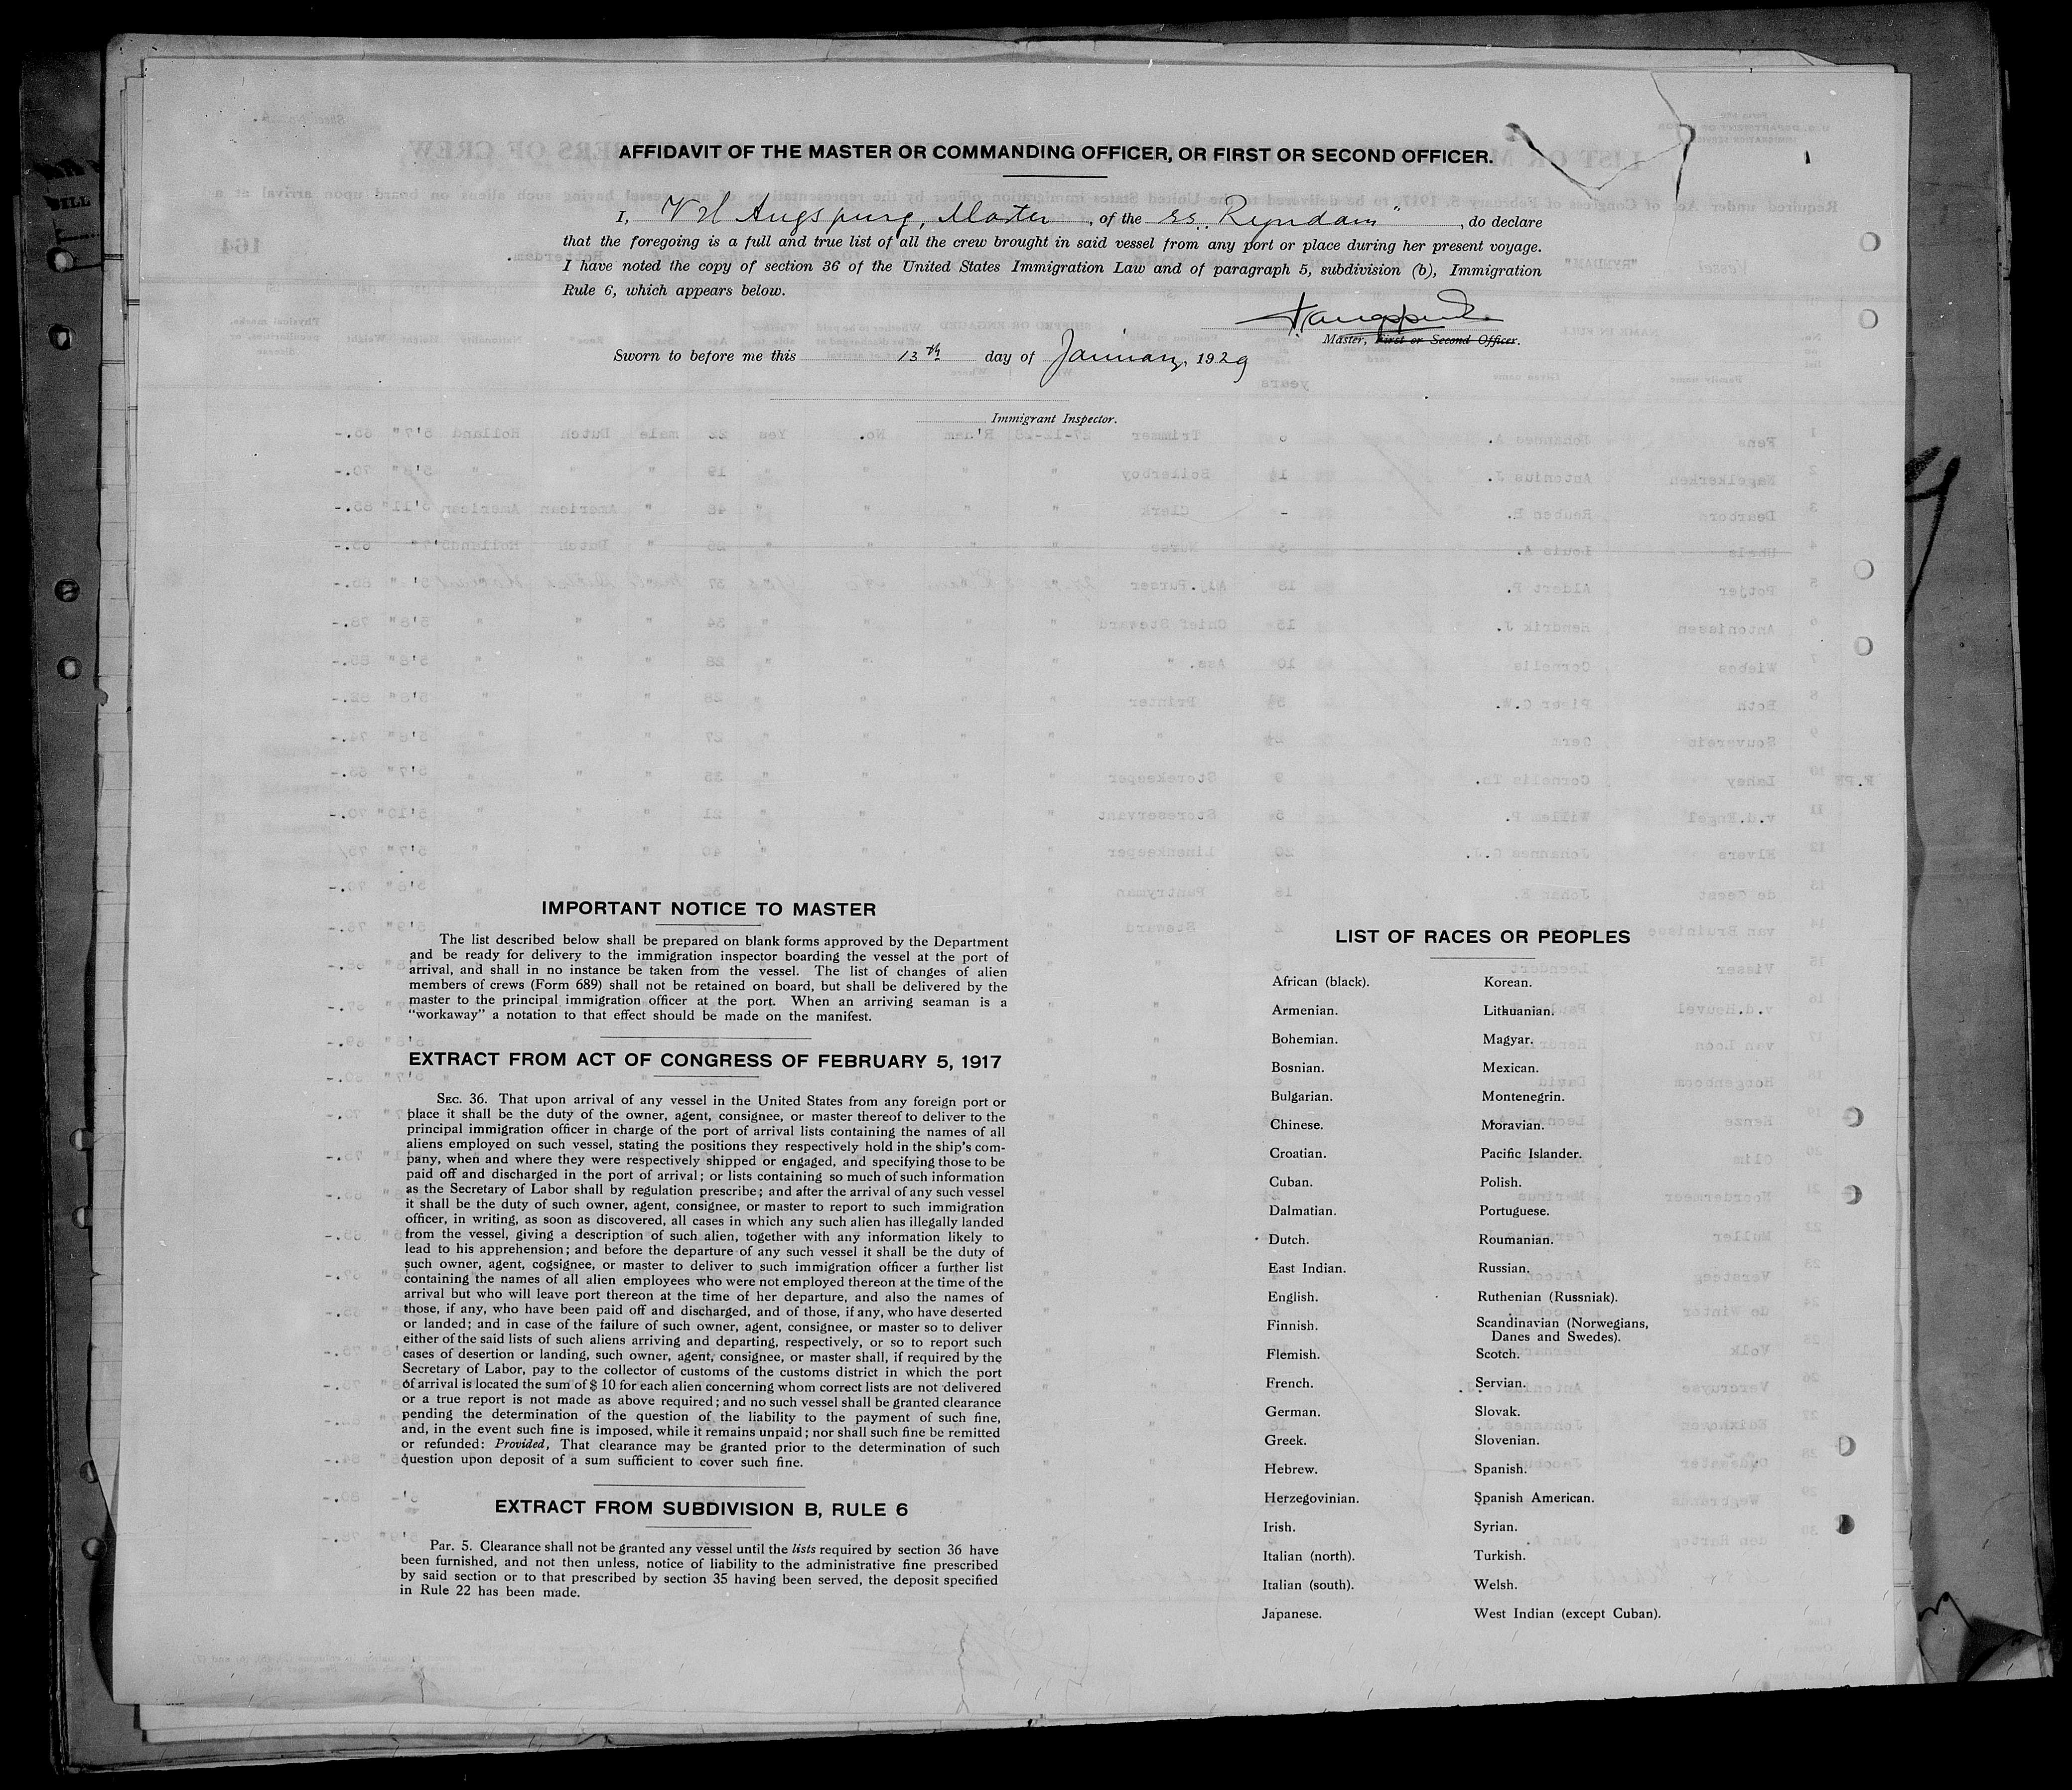 AFFIDAVIT OF THE MASTER OR COMMANDING OFFICER, OR FIRST OR SECOND OFFICER.
I, Augspurg, Master, of the ss. "Ryndam", do declare
that the foregoing is a full and true list of all the crew brought in said vessel from any port or place during her present voyage.
I have noted the copy of section 36 of the United States Immigration Law and of paragraph 5, subdivision (b), Immigration
Rule 6, which appears below.
Master, First or Second Officer.
Sworn to before me this 13th day of January, 1929
Immigrant Inspector.
IMPORTANT NOTICE TO MASTER
The list described below shall be prepared on blank forms approved by the Department
and be ready for delivery to the immigration inspector boarding the vessel at the port of
arrival, and shall in no instance be taken from the vessel. The list of changes of alien
members of crews (Form 689) shall not be retained on board, but shall be delivered by the
master to the principal immigration officer at the port. When an arriving seaman is a
"workaway" a notation to that effect should be made on the manifest.
EXTRACT FROM ACT OF CONGRESS OF FEBRUARY 5, 1917
SEC. 36. That upon arrival of any vessel in the United States from any foreign port or
place it shall be the duty of the owner, agent, consignee, or master thereof to deliver to the
principal immigration officer in charge of the port of arrival lists containing the names of all
aliens employed on such vessel, stating the positions they respectively hold in the ship's com-
pany, when and where they were respectively shipped or engaged, and specifying those to be
paid off and discharged in the port of arrival; or lists containing so much of such information
as the Secretary of Labor shall by regulation prescribe; and after the arrival of any such vessel
it shall be the duty of such owner, agent, consignee, or master to report to such immigration
officer, in writing, as soon as discovered, all cases in which any such alien has illegally landed
from the vessel, giving a description of such alien, together with any information likely to
lead to his apprehension; and before the departure of any such vessel it shall be the duty of
such owner, agent, cogsignee, or master to deliver to such immigration officer a further list
containing the names of all alien employees who were not employed thereon at the time of the
arrival but who will leave port thereon at the time of her departure, and also the names of
those, if any, who have been paid off and discharged, and of those, if any, who have deserted
or landed; and in case of the failure of such owner, agent, consignee, or master so to deliver
either of the said lists of such aliens arriving and departing, respectively, or so to report such
cases of desertion or landing, such owner, agent, consignee, or master shall, if required by the
Secretary of Labor, pay to the collector of customs of the customs district in which the port
of arrival is located the sum of $ 10 for each alien concerning whom correct lists are not delivered
or a true report is not made as above required; and no such vessel shall be granted clearance
pending the determination of the question of the liability to the payment of such fine,
and, in the event such fine is imposed, while it remains unpaid; nor shall such fine be remitted
or refunded: Provided, That clearance may be granted prior to the determination of such
question upon deposit of a sum sufficient to cover such fine.
EXTRACT FROM SUBDIVISION B, RULE 6
Par. 5. Clearance shall not be granted any vessel until the lists required by section 36 have
been furnished, and not then unless, notice of liability to the administrative fine prescribed
by said section or to that prescribed by section 35 having been served, the deposit specified
in Rule 22 has been made.
LIST OF RACES OR PEOPLES
African (black).
Armenian.
Bohemian.
Bosnian.
Bulgarian.
Chinese.
Croatian.
Cuban.
Dalmatian.
Dutch.
East Indian.
English.
Finnish.
Flemish.
French.
German.
Greek.
Hebrew.
Herzegovinian.
Irish.
Italian (north).
Italian (south).
Japanese.
Korean.
Lithuanian.
Magyar.
Mexican.
Montenegrin.
Moravian.
Pacific Islander.
Polish.
Portuguese.
Roumanian.
Russian.
Ruthenian (Russniak).
Scandinavian (Norwegians,
Danes and Swedes).
Scotch.
Servian.
Slovak.
Slovenian.
Spanish.
Spanish American.
Syrian.
Turkish.
Welsh.
West Indian (except Cuban).